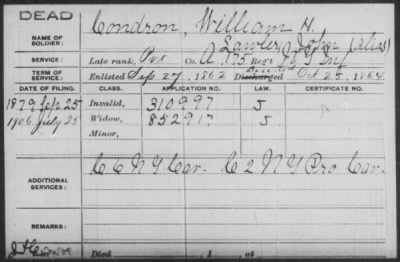 DEAD
NAME OF SOLDIER: Condron, William H.
Lawler, John (alias)
SERVICE: Late rank, Pvt Co. A, 175 Reg't N.Y. Inf
TERM OF SERVICE: Enlisted Sep 27, 1862 Discharged Oct 25, 1864
DATE OF FILING. CLASS. APPLICATION NO. LAW. CERTIFICATE NO.
1879 Sep 25 Invalid, 310997 J
1906 July 25 Widow, 852917 J
Minor,
ADDITIONAL SERVICES: C C N Y Cav. C 2 N Y Pro Cav.
REMARKS:
Died , 1 , at